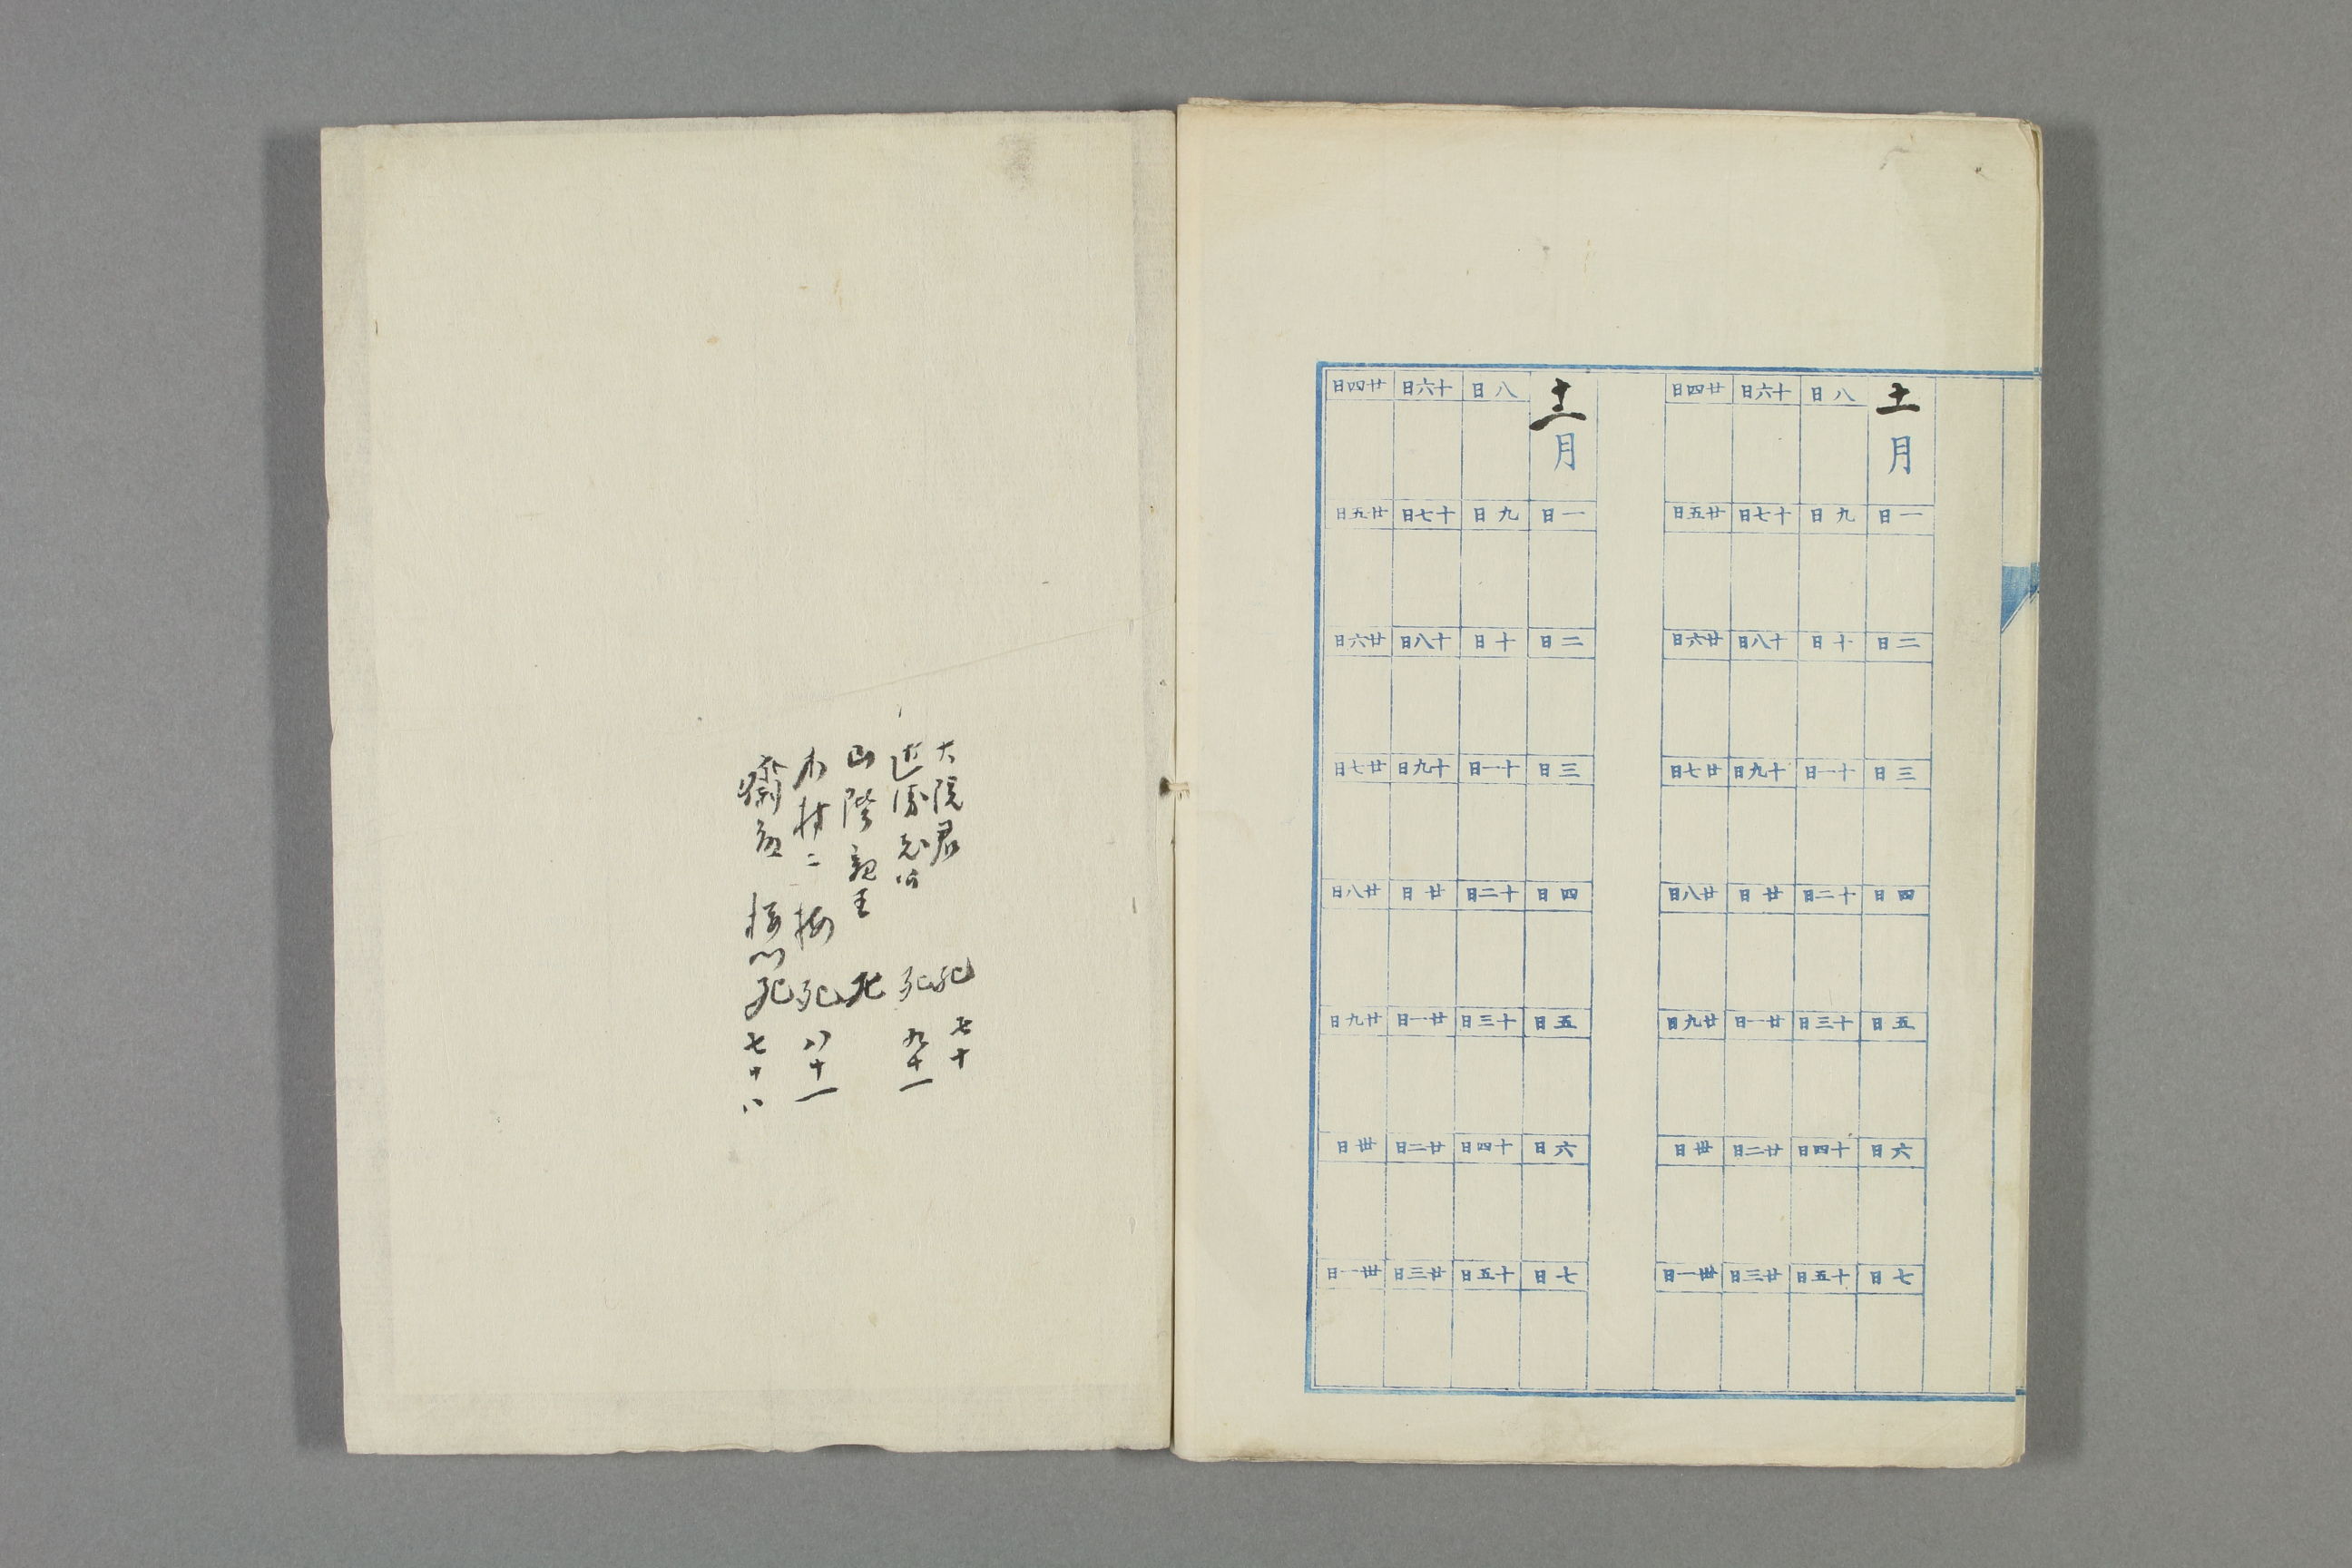 十一月
一日
二日
三日
四日
五日
六日
七日
八日
九日
十日
十一日
十二日
十三日
十四日
十五日
十六日
十七日
十八日
十九日
廿日
廿一日
廿二日
廿三日
廿四日
廿五日
廿六日
廿七日
廿八日
廿九日
卅日
卅一日
十二月
一日
二日
三日
四日
五日
六日
七日
八日
九日
十日
十一日
十二日
十三日
十四日
十五日
十六日
十七日
十八日
十九日
廿日
廿一日
廿二日
廿三日
廿四日
廿五日
廿六日
廿七日
廿八日
廿九日
卅日
卅一日
大院君 死 七十
近衛老公 死 九十一
山階親王 死
木村二梅 死 八十一
齋 死 七十八